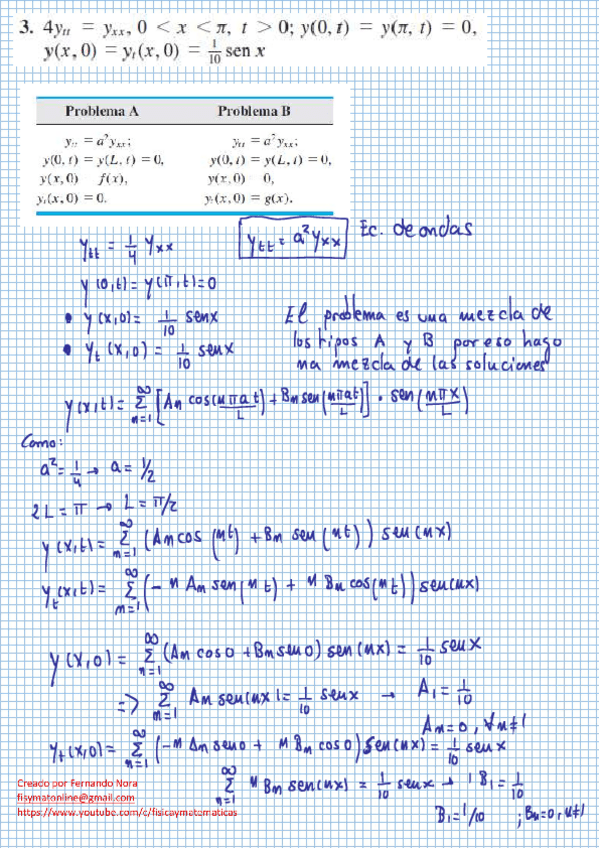 3. 4yₜₜ = yₓₓ, 0 < x < π, t > 0; y(0, t) = y(π, t) = 0,
y(x, 0) = yₜ(x, 0) = 1/10 sen x
Problema A Problema B
yₜₜ = a²yₓₓ; yₜₜ = a²yₓₓ;
y(0, t) = y(L, t) = 0, y(0, t) = y(L, t) = 0,
y(x, 0) f(x), y(x, 0) 0,
yₜ(x, 0) = 0. yₜ(x, 0) = g(x).
yₜₜ = 1/4 yₓₓ yₜₜ = a² yₓₓ Ec. de ondas
y(0,t) = y(π,t) = 0
• y(x,0) = 1/10 senx
• yₜ(x,0) = 1/10 senx
El problema es una mezcla de
los tipos A y B por eso hago
na mezcla de las soluciones
y(x,t) = ∑ₙ₌₁^∞ [An cos(nπat/L) + Bn sen(nπat/L)] · sen(nπx/L)
Como:
a² = 1/4 → a = 1/2
2L = π → L = π/2
y(x,t) = ∑ₙ₌₁^∞ (An cos(nt) + Bn sen(nt)) sen(nx)
yₜ(x,t) = ∑ₙ₌₁^∞ (-n An sen(nt) + n Bn cos(nt)) sen(nx)
y(x,0) = ∑ₙ₌₁^∞ (An cos0 + Bn sen0) sen(nx) = 1/10 senx
=> ∑ₙ₌₁^∞ An sen(nx) = 1/10 senx → A₁ = 1/10
An = 0, ∀n≠1
yₜ(x,0) = ∑ₙ₌₁^∞ (-n An sen0 + n Bn cos0) sen(nx) = 1/10 senx
∑ₙ₌₁^∞ n Bn sen(nx) = 1/10 senx → 1 B₁ = 1/10
B₁ = 1/10 ; Bn = 0, n≠1
Creado por Fernando Nora
fisymatonline@gmail.com
https://www.youtube.com/c/fisicaymatematicas